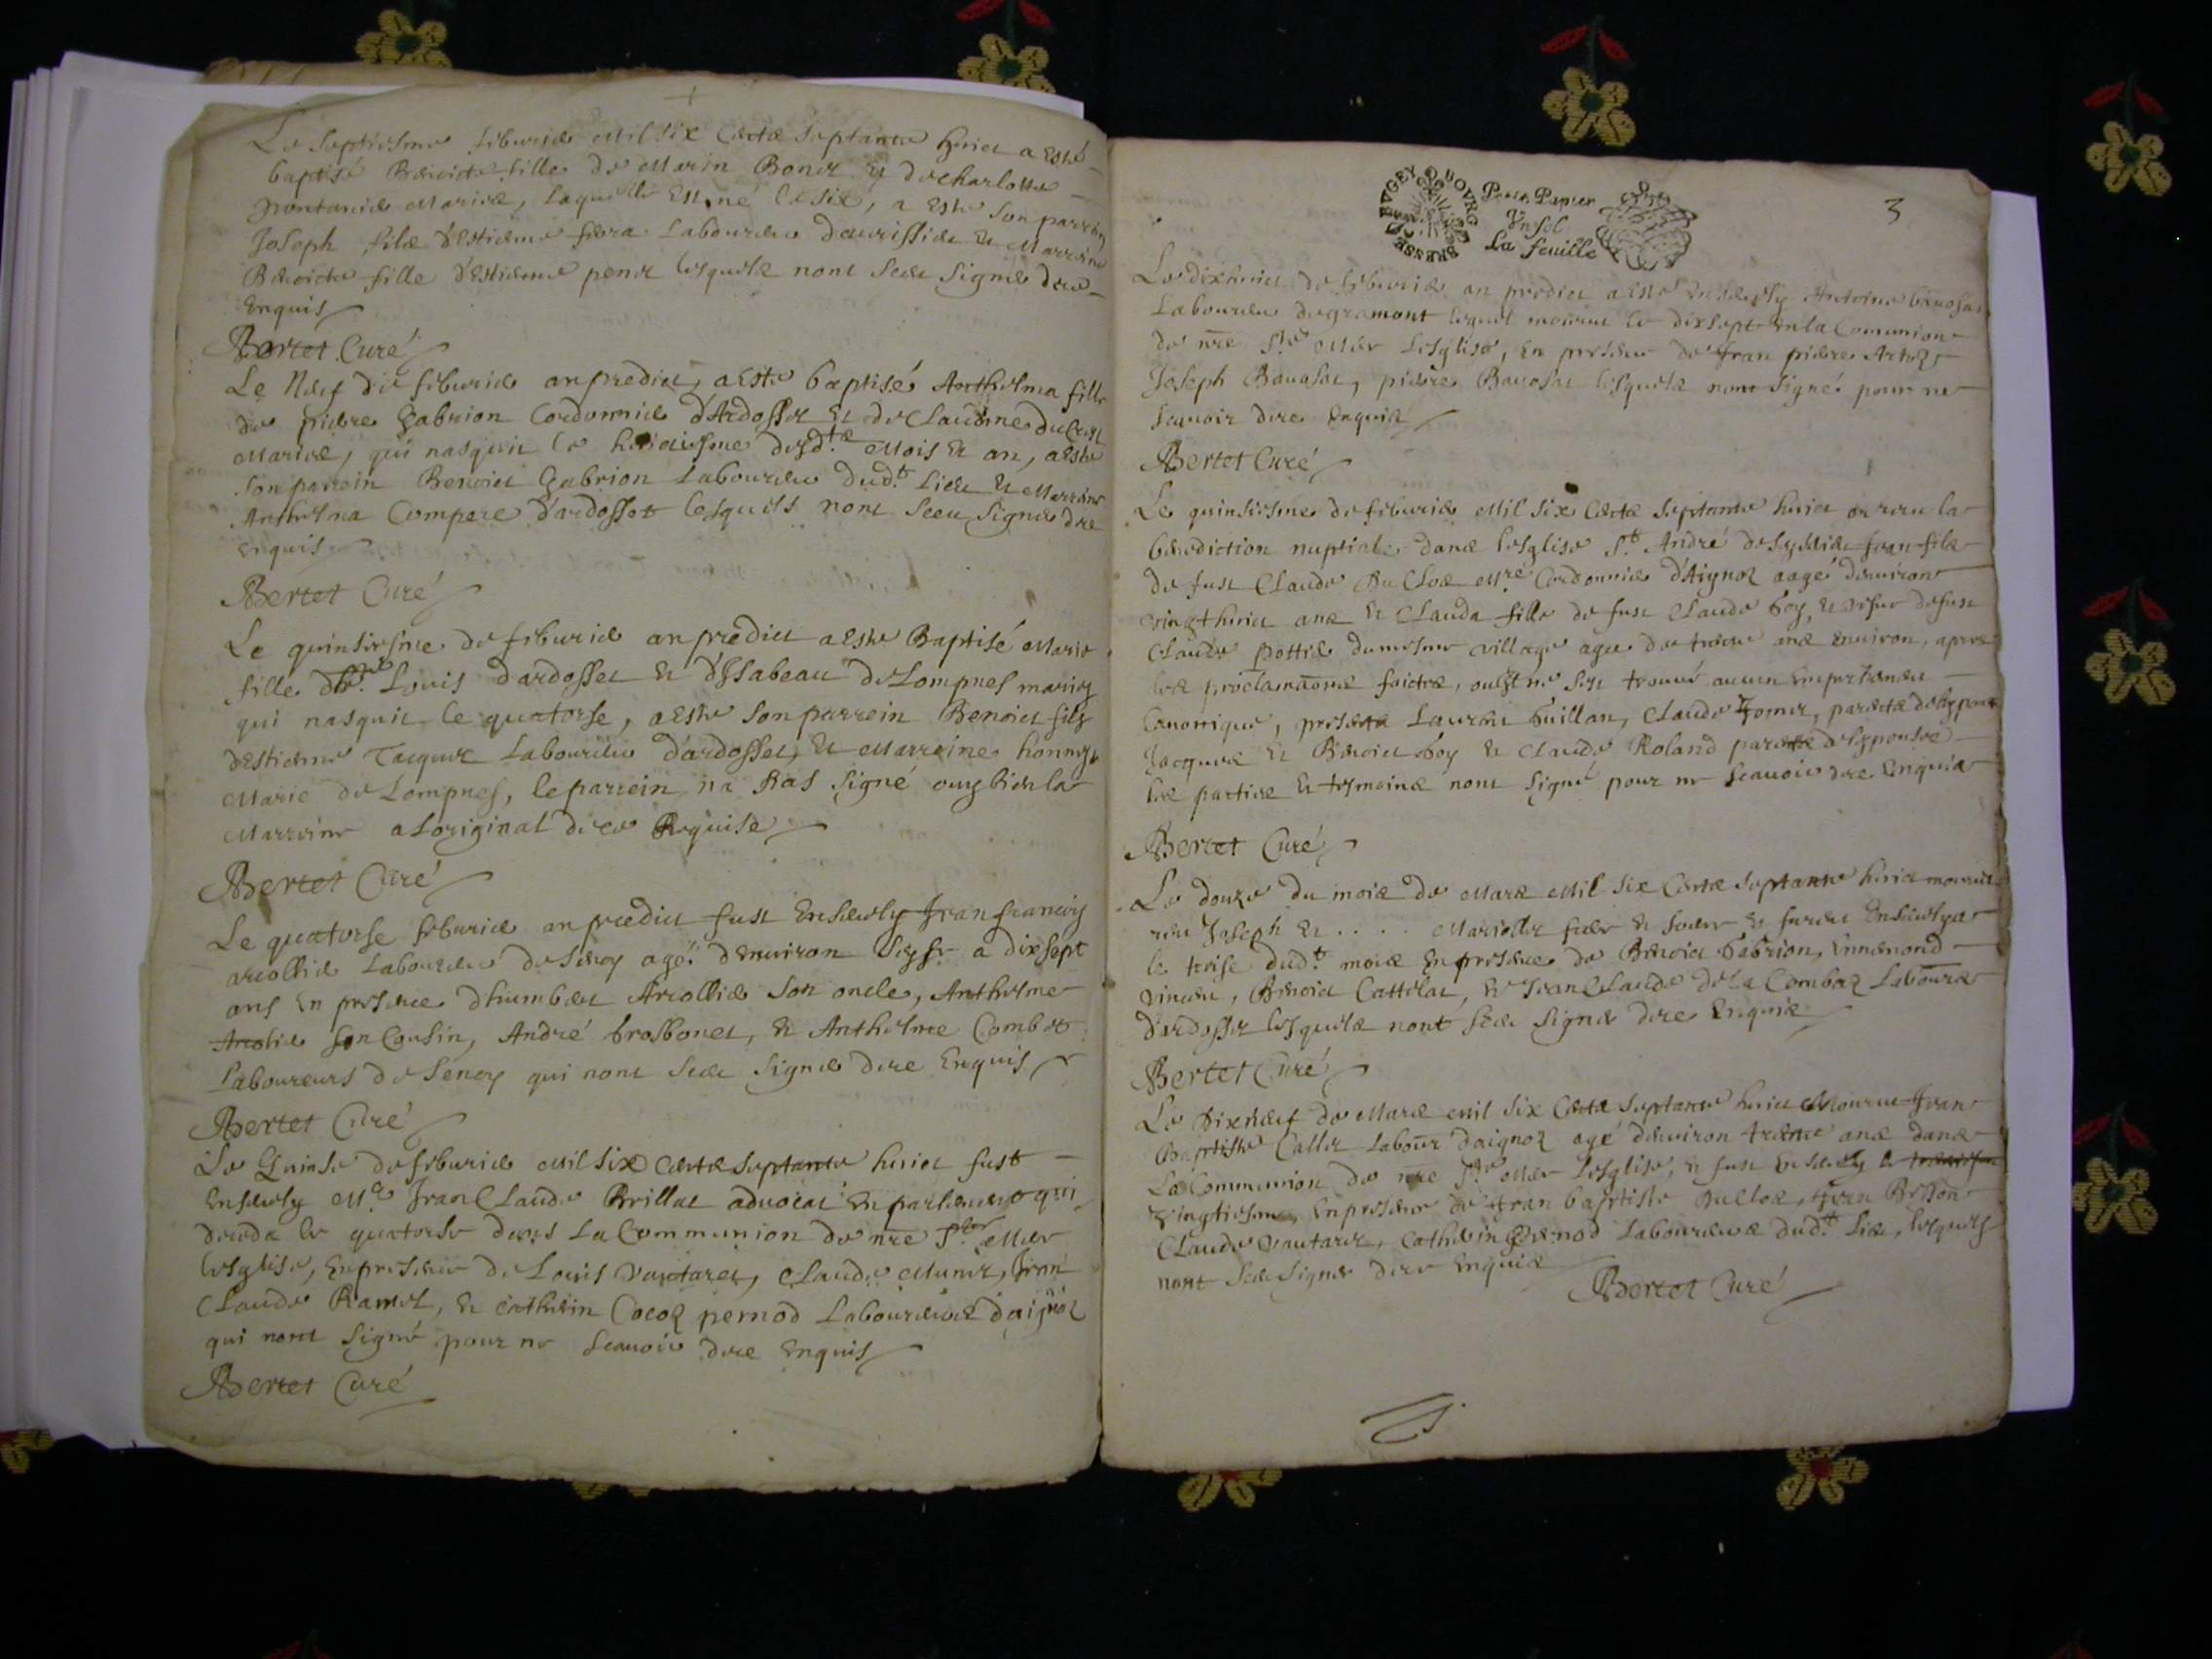 Le septiesme feburier Mil six Cents septante huict a esté
baptisé Benoicte fille de Marin Bonet et de charlotte
mariés, laquelle Est né le six, a este son parrein
Joseph fils d'Estienne laboureur et Marreine
Benoicte fille d'Estienne penet lesquels nont sceu signer de ce
Enquis
Bertet Curé
Le Neuf de feburier an predict, a esté baptisé Anthelma fille
de piere Gabrion Cordonnier d'Ardosset et de Claudine
Mariés, qui nasquit le huictiesme desdts Mois et an, a este
son parrein Benoict Gabrion laboureur dudt lieu et Marreine
Anthelma Compere d'ardosset lesquels nont sceu signer de ce
enquis
Bertet Curé
Le quinsiesme de feburier an predict a este Baptisé Marie
fille Louis dardosset et d'Issabeau de Lompnes mariés
qui nasquit le quatorse, a este son parrein Benoict fils
d'Estienne Tacquet Laboureur d'ardosset, et Marreine honneste
Marie de Lompnes, le parrein na Pas signé ouy bien la
Marreine a Loriginal de ce Requise
Bertet Curé
Le quatorse feburier an predict fust Enseuely Jean francois
Arcollier Laboureur de Seney agé d'enuiron seyse a dixsept
ans en presence dhumbert Arcollier son oncle, Anthelme
Arcolier son Cousin, André brossonet, et Anthelme Combet
Laboureurs de Seney qui nont sceu signer de ce Enquis
Bertet Curé
Le Quinse de feburier Mil six Cents septante huict fust
Enseuely Me Jean Claude Brillat aduocat en parlement qui
deceda le quatorse dans La Communion de nre Ste Mere
lesglise, en presence de Louis Vautaret, Claude Munet, Jean
Claude Ramel, et Catherin Cocoz pernod Laboureurs d'aignoz
qui nont signé pour ne scauoir de ce enquis
Bertet Curé
BRESSE BVGEY BOVRG
Petit Papier
Vn sol
La feuille
3
Le dixhuict de feburier an predict a esté enseuely Antoine
Laboureur de gramont lequel mourut le dixsept en la Communion
de nre Ste Mere Lesglise, en presence de Jean piere
Joseph Bauosat, piere Bauosat lesquels nont signé pour ne
scauoir de ce enquis
Bertet Curé
Le quinsiesme de feburier Mil six Cents septante huict on receu la
benediction nuptiale dans lesglise St André de Jean fils
de fust Claude Mre Cordonnier d'Aignoz aagé denuiron
vingthuict ans et Clauda fille de fust Claude boy, et de fust
Claude Pottier du mesme village agee de trente ans enuiron, apres
les proclamaons faictes, ou il ne sest trouué aucun empeschement
Canonique, presents Laurent Guillan, Claude parents de lespoux
Jacques et Benoict boy et Claude Roland parents de lespouse
les parties et tesmoins nont signé pour ne scauoir de ce enquis
Bertet Curé
Le douze du mois de Mars Mil six Cents septante huict mourut
Joseph et .... Mariollet frere et soeur et furent Enseuelys
le treise dudt mois en presence de Benoict Gabrion, Ennemond
vincent, Benoict Cattelat, et Jean Claude de La Combaz Laboures
d'ardosset lesquels nont sceu signer de ce enquis
Bertet Curé
Le Dixneuf de Mars Mil six Cents septante huict Mourut Jean
Baptiste Callet Labour d'aignoz agé denuiron trente ans dans
La Communion de nre Ste Mere Lesglise, et fust enseuely le
vingtiesme, en presence de Jean baptiste Jean
Claude Vautaret, Catherin Pernod Laboureurs dudt lieu, lesquels
nont sceu signer de ce enquis
Bertet Curé